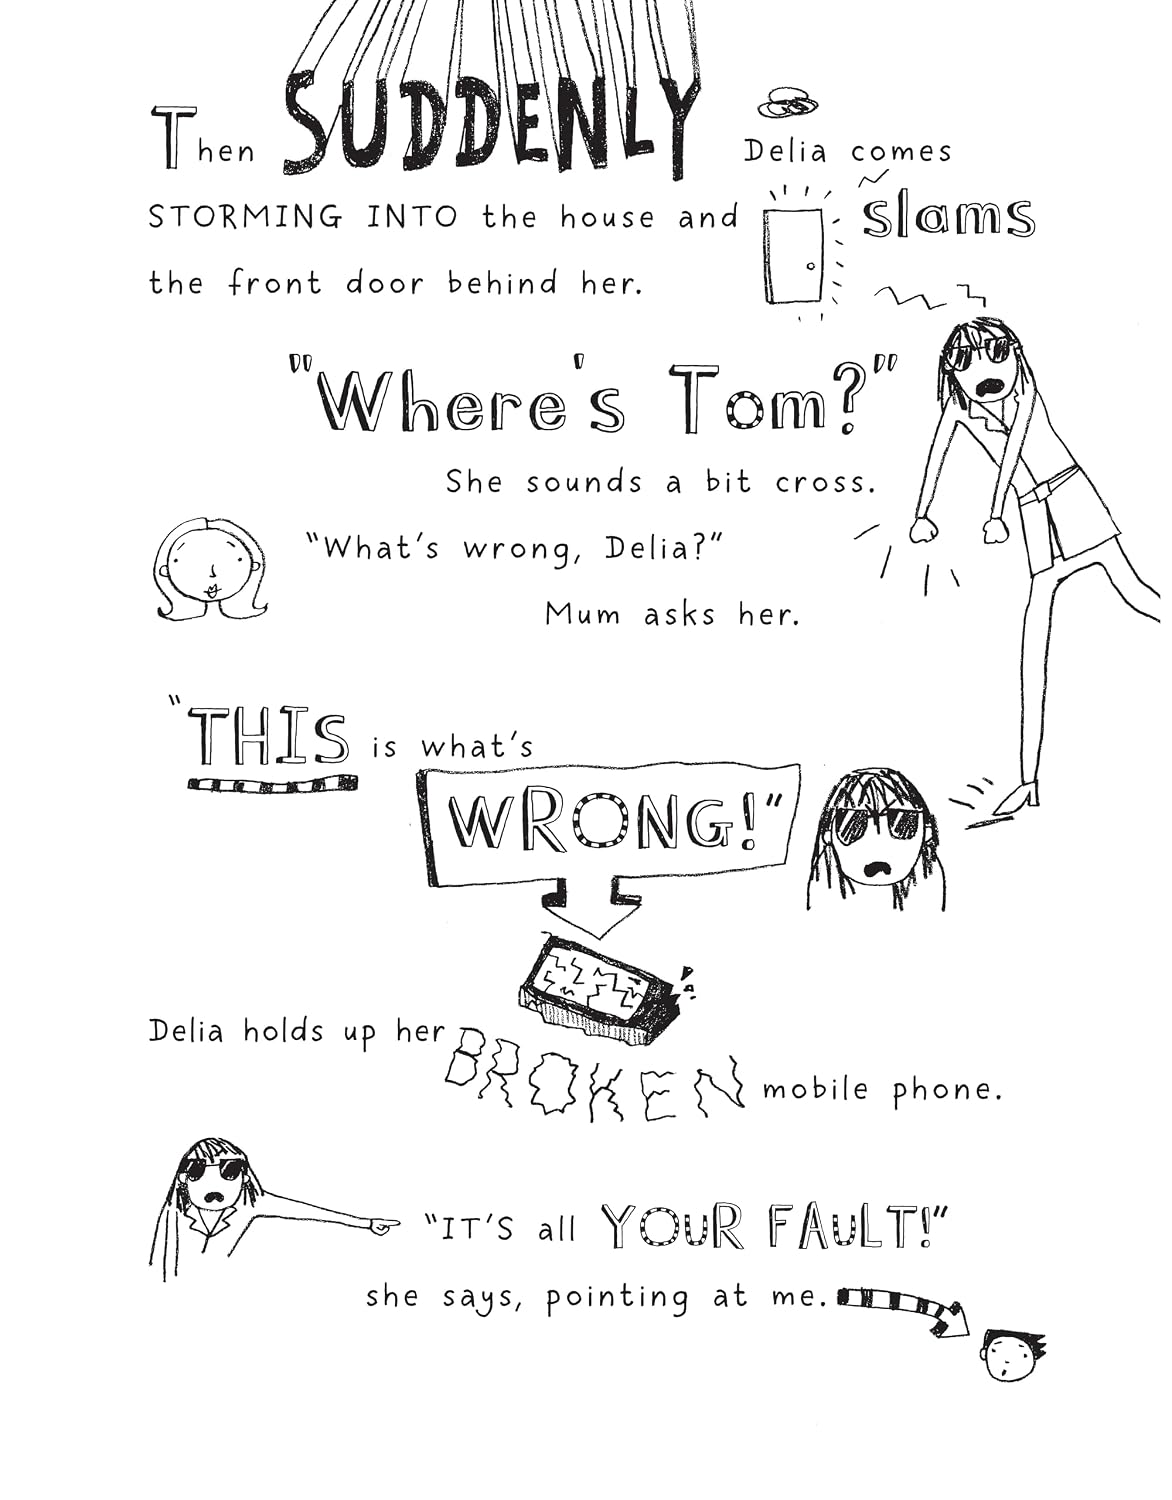 Then SUDDENLY Delia comes
STORMING INTO the house and slams
the front door behind her.
"Where's Tom?"
She sounds a bit cross.
"What's wrong, Delia?"
Mum asks her.
"THIS is what's
WRONG!"
Delia holds up her BROKEN mobile phone.
"IT'S all YOUR FAULT!"
she says, pointing at me.